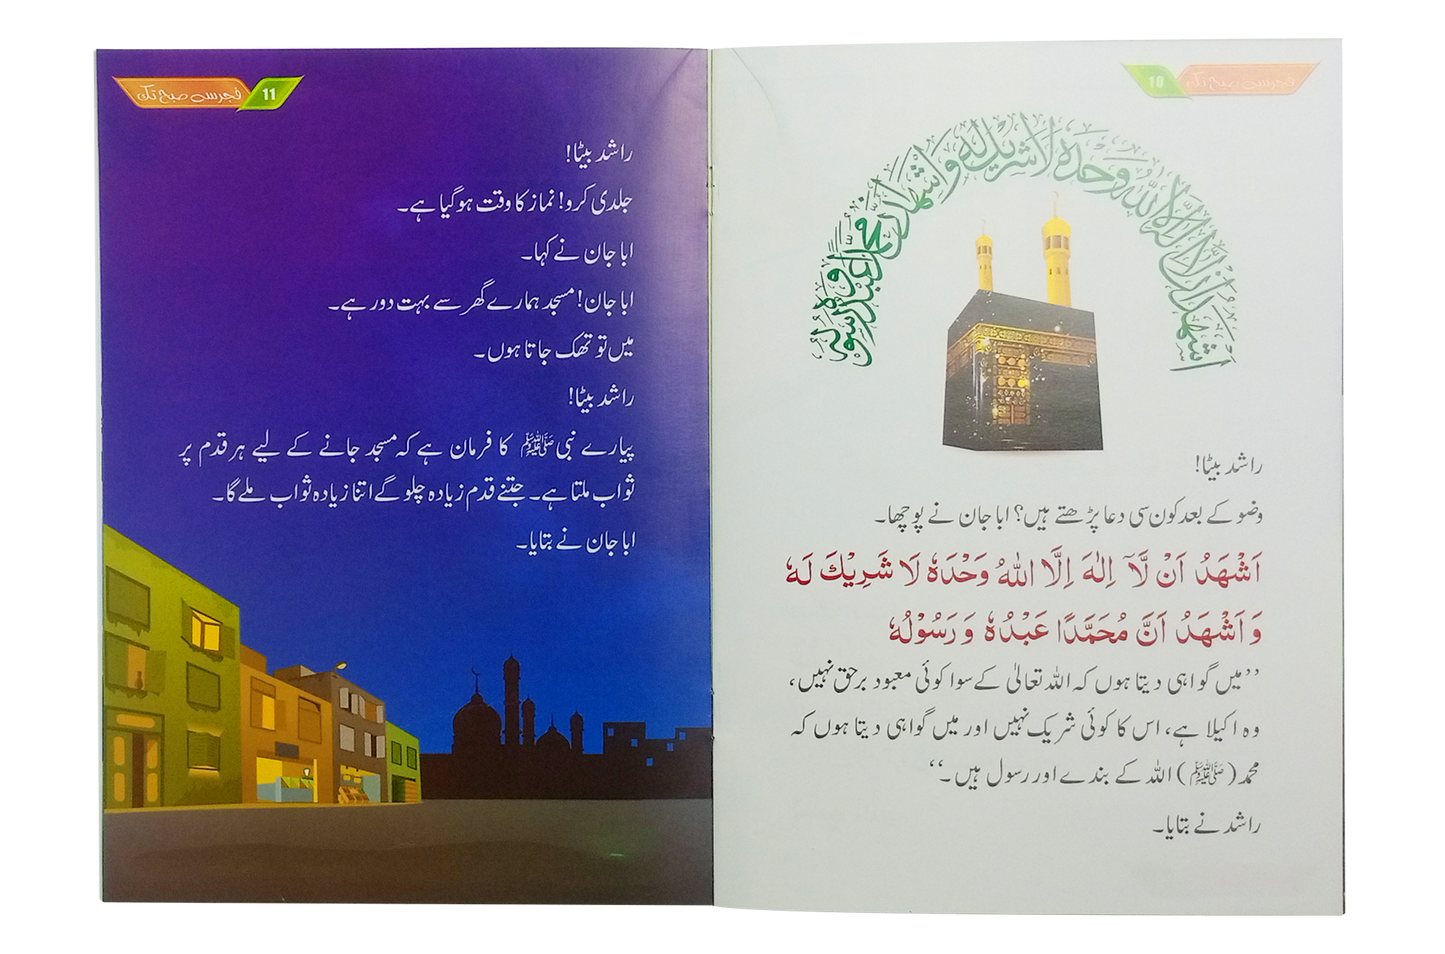 10
فجر سے صبح تک
اشهد ان لا اله الا الله وحده لا شريك له واشهد ان محمدا عبده ورسوله
راشد بیٹا!
وضو کے بعد کون سی دعا پڑھتے ہیں؟ ابا جان نے پوچھا۔
اَشْهَدُ اَنْ لَّآ اِلٰهَ اِلَّا اللهُ وَحْدَهٗ لَا شَرِيْكَ لَهٗ
وَ اَشْهَدُ اَنَّ مُحَمَّدًا عَبْدُهٗ وَ رَسُوْلُهٗ
’’میں گواہی دیتا ہوں کہ اللہ تعالیٰ کے سوا کوئی معبود برحق نہیں،
وہ اکیلا ہے، اس کا کوئی شریک نہیں اور میں گواہی دیتا ہوں کہ
محمد (ﷺ) اللہ کے بندے اور رسول ہیں۔‘‘
راشد نے بتایا۔
11
فجر سے صبح تک
راشد بیٹا!
جلدی کرو! نماز کا وقت ہو گیا ہے۔
ابا جان نے کہا۔
ابا جان! مسجد ہمارے گھر سے بہت دور ہے۔
میں تو تھک جاتا ہوں۔
راشد بیٹا!
پیارے نبی ﷺ کا فرمان ہے کہ مسجد جانے کے لیے ہر قدم پر
ثواب ملتا ہے۔ جتنے قدم زیادہ چلو گے اتنا زیادہ ثواب ملے گا۔
ابا جان نے بتایا۔